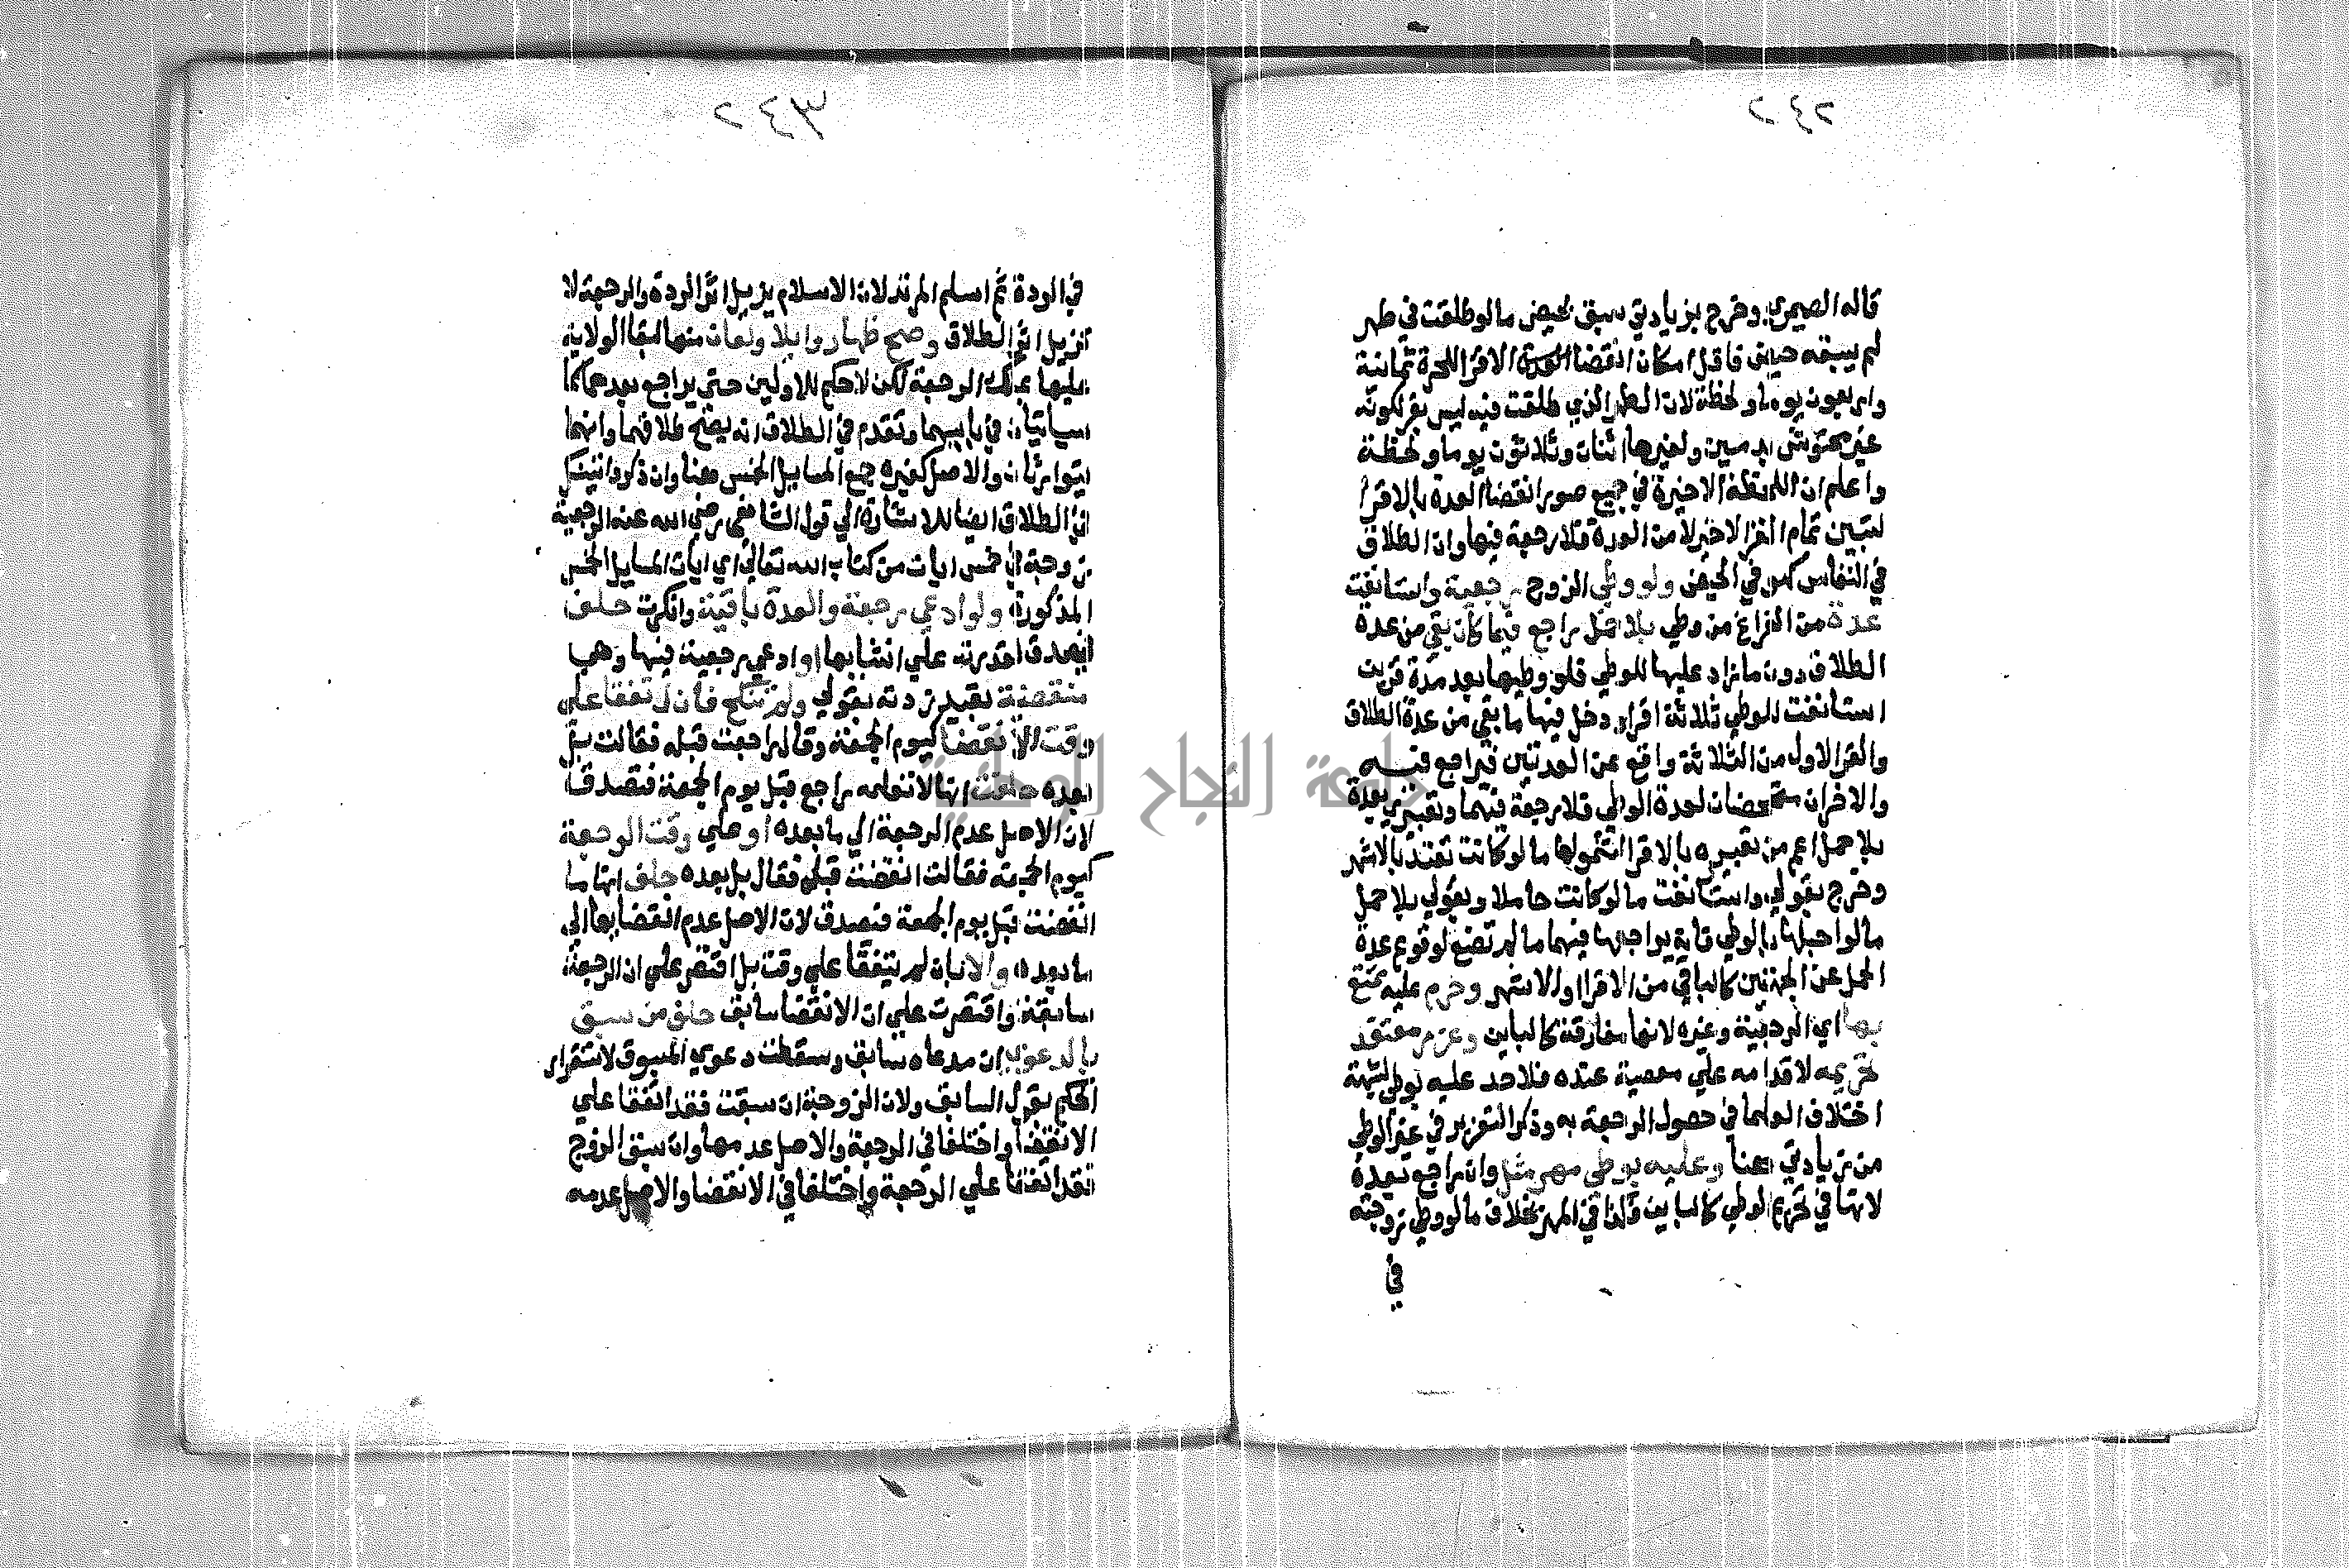 ٢٤٢
قاله الصيمري وخرج بزيادتي سبق بحيض ما لو طلقت في طهر
لم يسبقه حيض فاقل امكان انقضا العدة الاقرا للحرة ثمانية
واربعون يوما ولحظة لان الطهر الذي طلقت فيه ليس بقر لكونه
غير محتوش بدمين ولغيرها اثنان وثلاثون يوما ولحظة
واعلم ان اللحظة الاخيرة في جميع صور انقضا العدة بالاقرا
لتبين تمام القر الاخير لا من العدة فلا رجعة فيها وان الطلاق
في النفاس كهو في الحيض ولو وطي الزوج رجعية واستانفت
عدة من الفراغ من وطي بلا حمل راجع فيما كان بقي من عدة
الطلاق دون ما زاد عليها للوطي فلو وطيها بعد مدة قرين
استانفت للوطي ثلاثة اقرا ودخل فيها ما بقي من عدة الطلاق
والقر الاول من الثلاثة واقع عن العدتين فيراجع فيه
والاخران متمحضان لعدة الوطي فلا رجعة فيهما وتعبيري بعدة
بلا حمل اعم من تعبيره بالاقرا لشمولها ما لو كانت تعتد بالاشهر
وخرج بقولي واستانفت ما لو كانت حاملا وبقولي بلا حمل
ما لو احبلها بالوطي فانه يراجعها فيهما ما لم تضع لوقوع عدة
الحمل عن الجهتين كالباقي من الاقرا والاشهر وحرم عليه تمتع
بها اي الرجعية وغيره لانها مفارقة كالباين وعزر معتقد
تحريمه لاقدامه على معصية عنده فلا حد عليه بوطي لشبهة
اختلاف العلما في حصول الرجعة به وذكر التعزير في غير الوطي
من زيادتي هنا وعليه بوطي مهر مثل وان راجع بعده
لانها في تحريم الوطي كالباين فكذا في المهر بخلاف ما لو وطي زوجته
في
٣٤٢
في الردة ثم اسلم المرتد لان الاسلام يزيل اثر الردة والرجعة لا
تزيل اثر الطلاق وصح ظهار وايلا ولعان منها لبقا الولاية
عليها بملك الرجعة لكن لا حكم للاولين حتى يراجع بعدهما كما
سياتيان في بابيهما وتقدم في الطلاق انه يصح طلاقهما وانهما
يتوارثان والاصل كغيره جمع المسايل الخمس هنا وان ذكر
في الطلاق ايضا للاشارة الى قول الشافعي رضي الله عنه الرجعية
زوجة في خمس ايات من كتاب الله تعالى اي ايات المسايل الخمس
المذكورة ولو ادعى رجعة والعدة باقية وانكرت حلف
فيصدق لقدرته على انشايها او ادعى رجعية فيها وهي
منقضية بقيد زدته بقولي ولم تنكح فان اتفقا على
وقت الانقضا كيوم الجمعة وقال راجعت قبله فقالت بل
بعده حلفت انها لا تعلمه راجع قبل يوم الجمعة فتصدق
لان الاصل عدم الرجعة الى ما بعده او على وقت الرجعة
كيوم الجمعة فقالت انقضت قبله فقال بل بعده حلف انها ما
انقضت قبل يوم الجمعة فيصدق لان الاصل عدم انقضايها الى
ما بعده والا بان لم يتفقا على وقت بل اقتصر على ان الرجعة
سابقة واقتصرت على ان الانقضا سابق حلف من سبق
بالدعوى ان مدعاه سابق وسقطت دعوى المسبوق لاستقرار
الحكم بقول السابق ولان الزوجة ان سبقت فقد اتفقا على
الانقضا واختلفا في الرجعة والاصل عدمها وان سبق الزوج
فقد اتفقا على الرجعة واختلفا في الانقضا والاصل عدمه
جامعة النجاح الوطنية